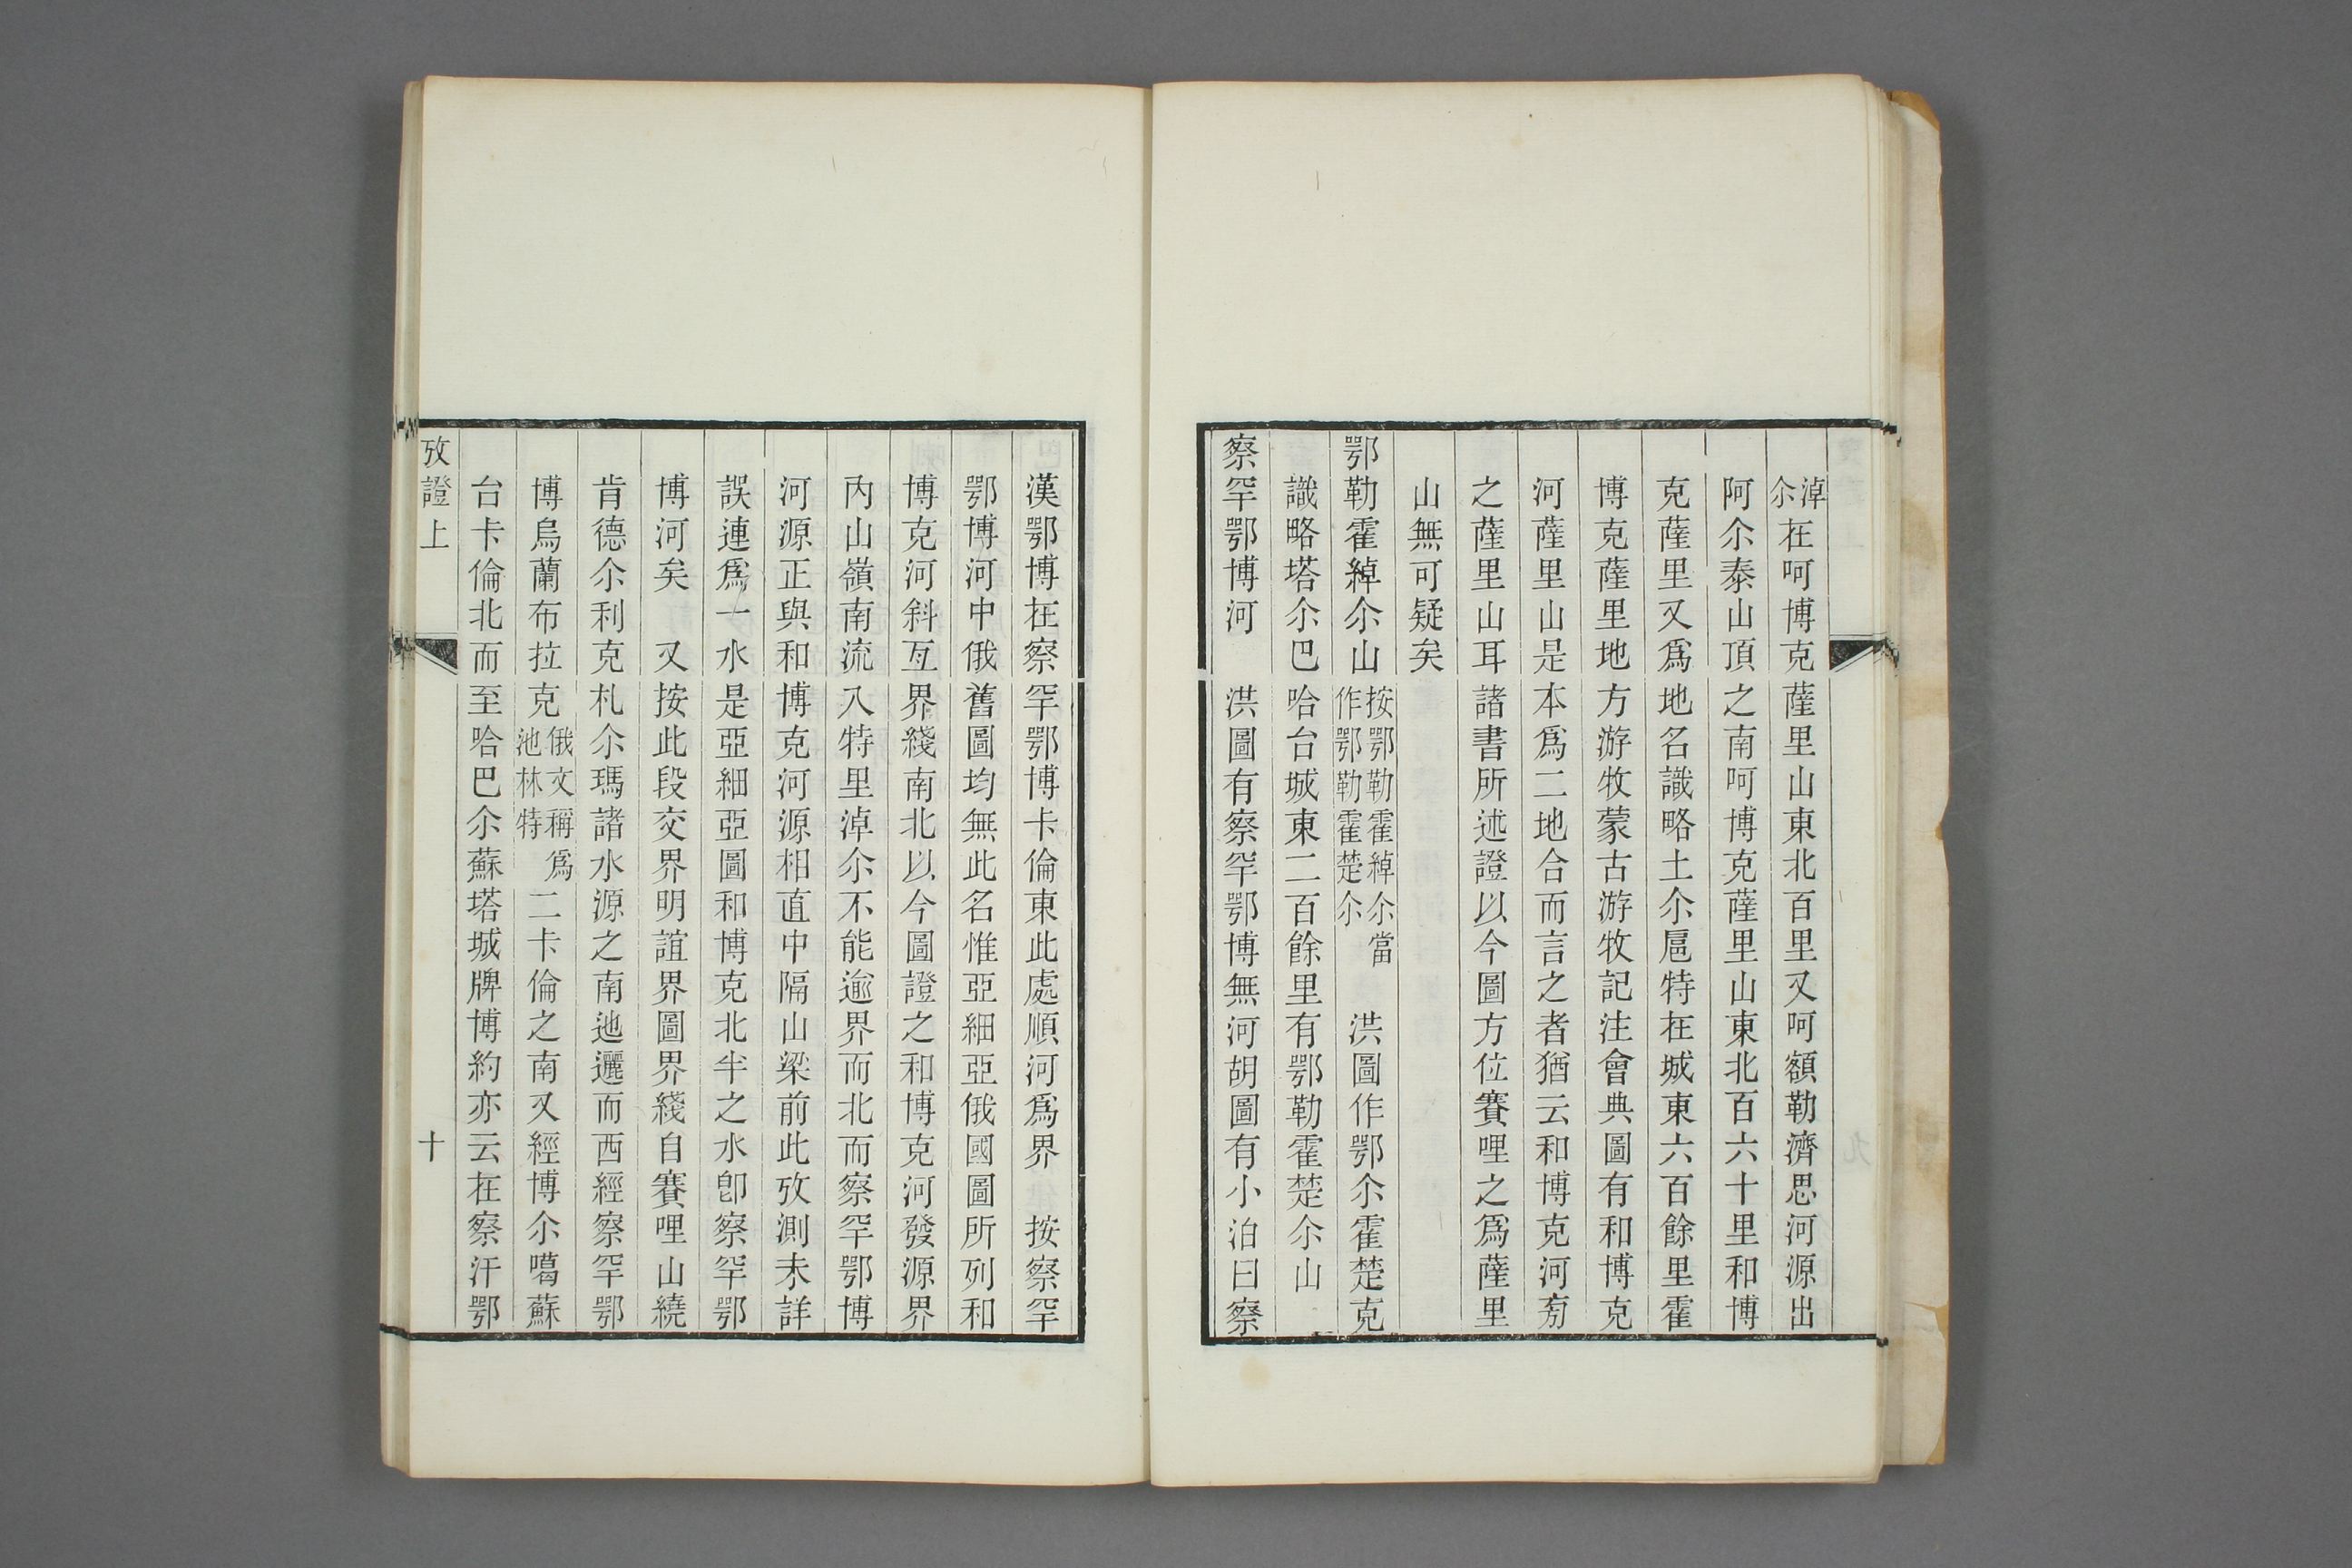 淖尒在呵博克薩里山東北百里又呵額勒濟思河源出
阿尒泰山頂之南呵博克薩里山東北百六十里和博
克薩里又爲地名識略土尒扈特在城東六百餘里霍
博克薩里地方游牧蒙古游牧記注會典圖有和博克
河薩里山是本爲二地合而言之者猶云和博克河㫄
之薩里山耳諸書所述證以今圖方位賽哩之爲薩里
山無可疑矣
鄂勒霍綽尒山按鄂勒霍綽尒當作鄂勒霍楚尒 洪圖作鄂尒霍楚克
識略塔尒巴哈台城東二百餘里有鄂勒霍楚尒山
察罕鄂博河 洪圖有察罕鄂博無河胡圖有小泊曰察
漢鄂博在察罕鄂博卡倫東此處順河爲界 按察罕
鄂博河中俄舊圖均無此名惟亞細亞俄國圖所列和
博克河斜亙界綫南北以今圖證之和博克河發源界
內山嶺南流入特里淖尒不能逾界而北而察罕鄂博
河源正與和博克河源相直中隔山梁前此攷測未詳
誤連爲一水是亞細亞圖和博克北半之水卽察罕鄂
博河矣 又按此段交界明誼界圖界綫自賽哩山繞
肯德尒利克札尒瑪諸水源之南迆邐而西經察罕鄂
博烏蘭布拉克俄文稱爲池林特二卡倫之南又經博尒噶蘇
台卡倫北而至哈巴尒蘇塔城牌博約亦云在察汗鄂
攷證上
十